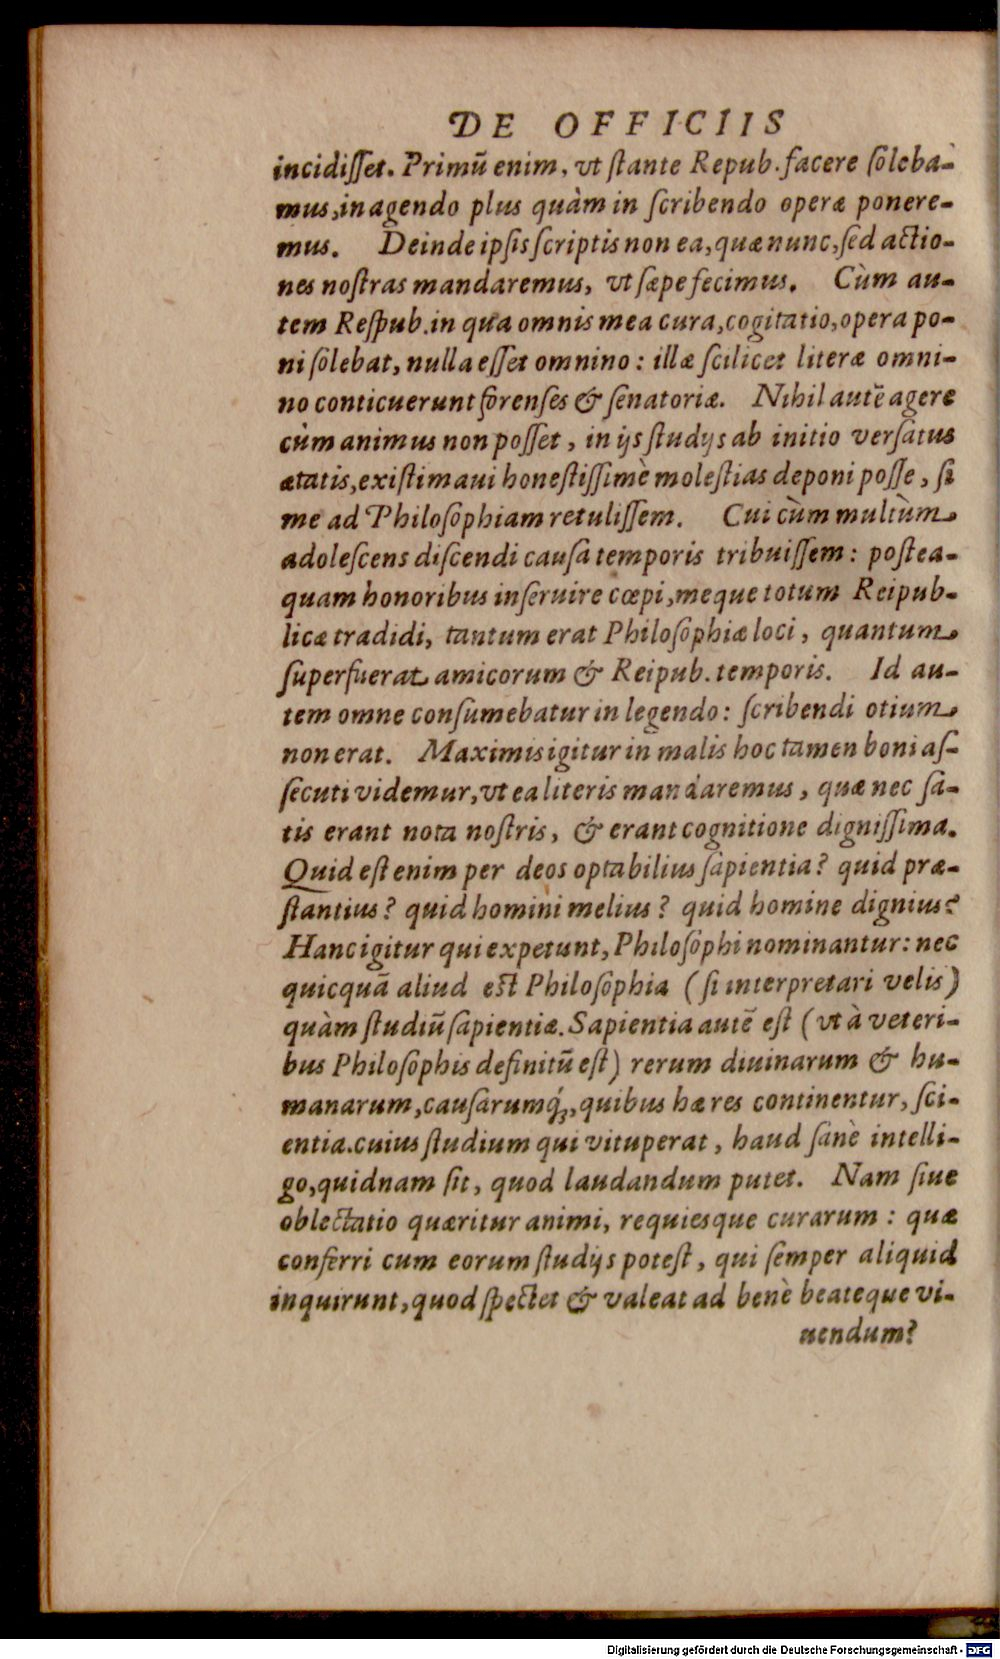 DE OFFICIIS
incidiſſet. Primũ enim, vt ſtante Repub. facere ſoleba-
mus, in agendo plus quàm in ſcribendo operæ ponere-
mus. Deinde ipſis ſcriptis non ea, quæ nunc, ſed actio-
nes noſtras mandaremus, vt ſæpe fecimus. Cùm au-
tem Reſpub. in qua omnis mea cura, cogitatio, opera po-
ni ſolebat, nulla eſſet omnino: illæ ſcilicet literæ omni-
no conticuerunt forenſes & ſenatoriæ. Nihil autẽ agere
cùm animus non poſſet, in ijs ſtudijs ab initio verſatus
ætatis, exiſtimaui honeſtiſſimè moleſtias deponi poſſe, ſi
me ad Philoſophiam retuliſſem. Cui cùm multùm
adoleſcens diſcendi cauſa temporis tribuiſſem: poſtea-
quam honoribus inſeruire cœpi, meque totum Reipub-
licæ tradidi, tantum erat Philoſophiæ loci, quantum
ſuperfuerat amicorum & Reipub. temporis. Id au-
tem omne conſumebatur in legendo: ſcribendi otium
non erat. Maximis igitur in malis hoc tamen boni aſ-
ſecuti videmur, vt ea literis mandaremus, quæ nec ſa-
tis erant nota noſtris, & erant cognitione digniſſima.
Quid eſt enim per deos optabilius ſapientia? quid præ-
ſtantius? quid homini melius? quid homine dignius?
Hanc igitur qui expetunt, Philoſophi nominantur: nec
quicquã aliud eſt Philoſophia (ſi interpretari velis)
quàm ſtudiũ ſapientiæ. Sapientia autẽ eſt (vt à veteri-
bus Philoſophis definitũ eſt) rerum diuinarum & hu-
manarum, cauſarumq́;, quibus hæ res continentur, ſci-
entia. cuius ſtudium qui vituperat, haud ſanè intelli-
go, quidnam ſit, quod laudandum putet. Nam ſiue
oblectatio quæritur animi, requiesque curarum: quæ
conferri cum eorum ſtudijs poteſt, qui ſemper aliquid
inquirunt, quod ſpectet & valeat ad benè beateque vi-
uendum?
Digitalisierung gefördert durch die Deutsche Forschungsgemeinschaft - DFG